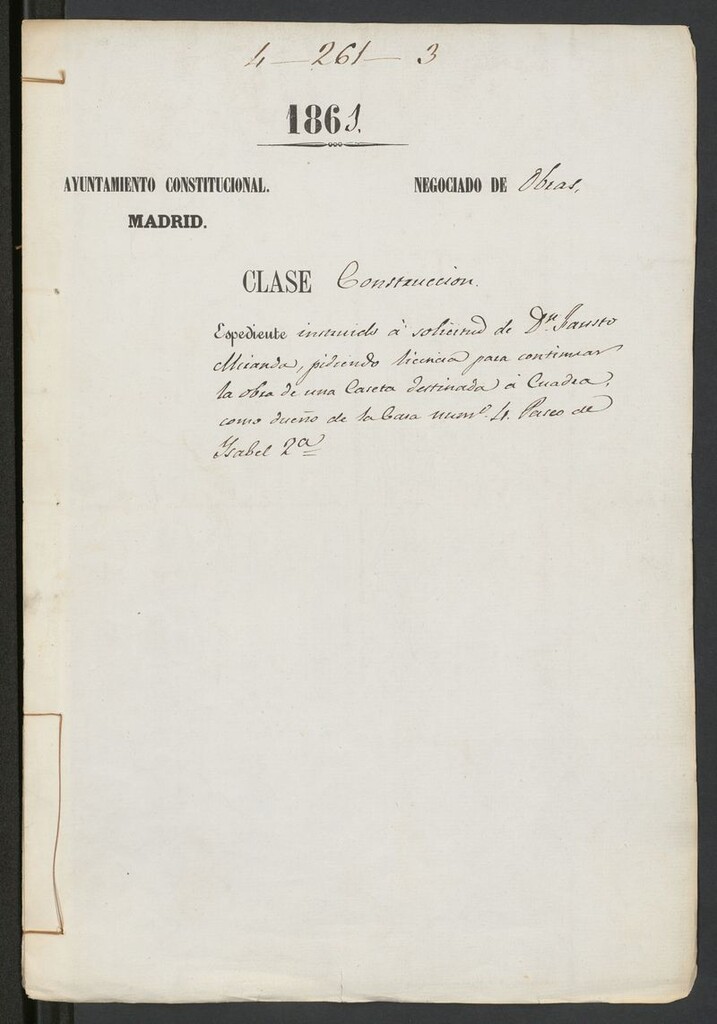 4 — 261 — 3
1861.
AYUNTAMIENTO CONSTITUCIONAL.
MADRID.
NEGOCIADO DE Obras.
CLASE Construccion.
Espediente instruido á solicitud de Dn. Fausto
Miranda, pidiendo licencia para continuar
la obra de una Caseta destinada á Cuadra,
como dueño de la Casa numº. 4. Paseo de
Ysabel 2ª